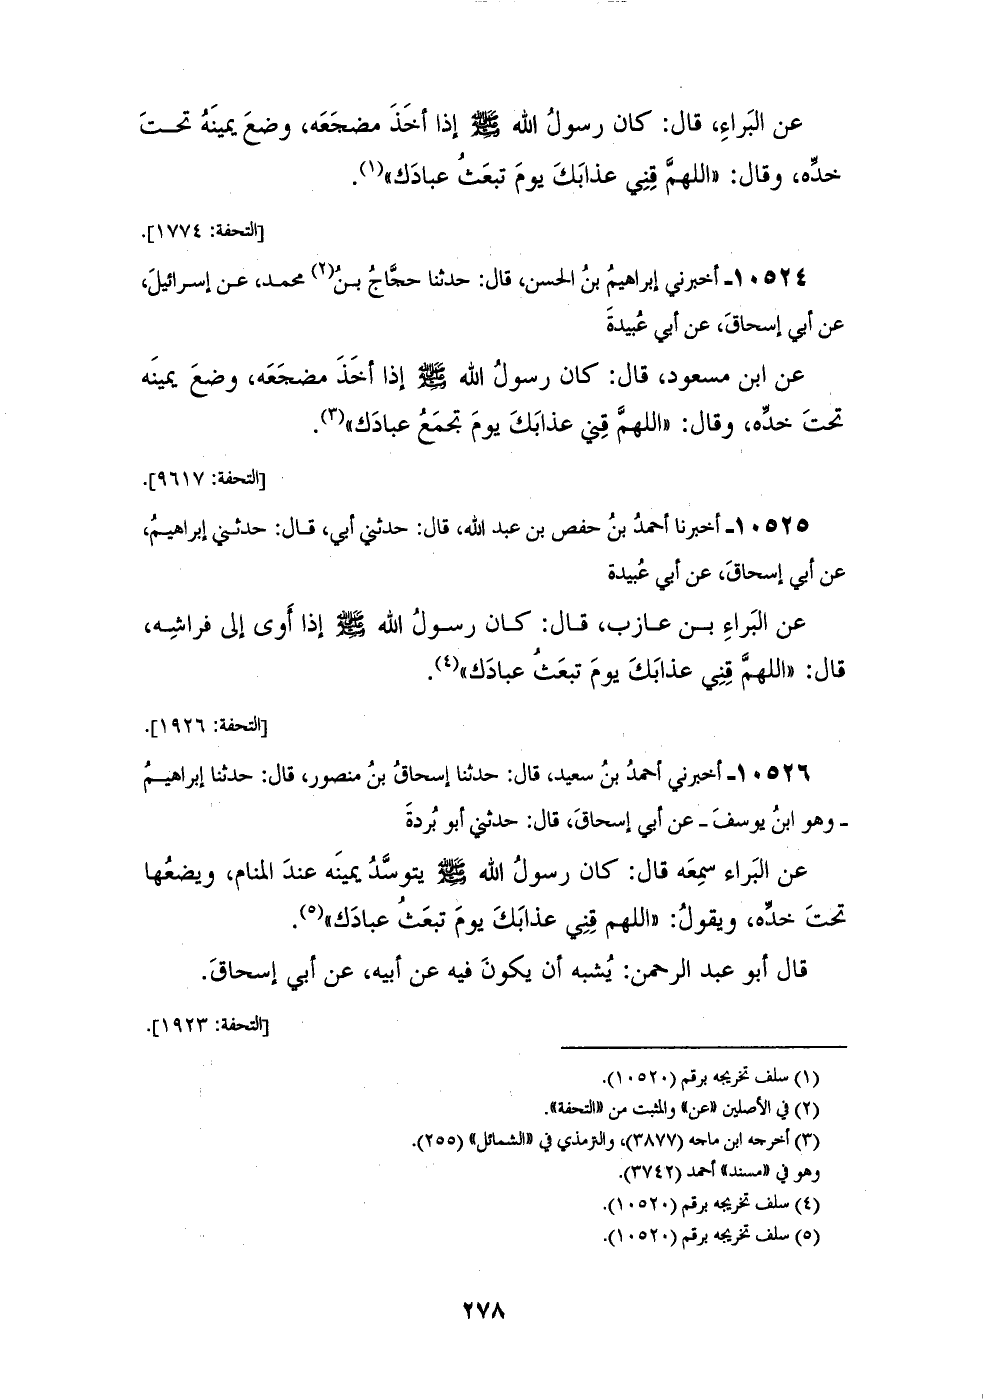 عن البَراءِ، قال: كان رسولُ الله ﷺ إذا أخَذَ مضجَعَه، وضعَ يمينَهُ تحـتَ
خدِّه، وقال: «اللهمَّ قِنِي عذابَكَ يومَ تبعَثُ عبادَك»(١).
[التحفة: ١٧٧٤].
١٠٥٢٤ـ أخبرني إبراهيمُ بنُ الحسن، قال: حدثنا حجَّاجُ بـنُ(٢) محمـد، عـن إسـرائيلَ،
عن أبي إسحاقَ، عن أبي عُبيدةَ
عن ابن مسعود، قال: كان رسولُ الله ﷺ إذا أخَذَ مضجَعَه، وضعَ يمينَه
تحتَ خدِّه، وقال: «اللهمَّ قِنِي عذابَكَ يومَ تجمَعُ عبادَك»(٣).
[التحفة: ٩٦١٧].
١٠٥٢٥ـ أخبرنا أحمدُ بنُ حفص بن عبد الله، قال: حدثني أبي، قـال: حدثـني إبراهيـمُ،
عن أبي إسحاقَ، عن أبي عُبيدة
عن البَراءِ بـن عـازب، قـال: كـان رسـولُ الله ﷺ إذا أَوى إلى فراشِـه،
قال: «اللهمَّ قِنِي عذابَكَ يومَ تبعَثُ عبادَك»(٤).
[التحفة: ١٩٢٦].
١٠٥٢٦ـ أخبرني أحمدُ بنُ سعيد، قال: حدثنا إسحاقُ بنُ منصور، قال: حدثنا إبراهيـمُ
ـ وهو ابنُ يوسفَ ـ عن أبي إسحاقَ، قال: حدثني أبو بُردةَ
عن البَراء سمِعَه قال: كان رسولُ الله ﷺ يتوسَّدُ يمينَه عندَ المنام، ويضعُها
تحتَ خدِّه، ويقولُ: «اللهم قِنِي عذابَكَ يومَ تبعَثُ عبادَك»(٥).
قال أبو عبد الرحمن: يُشبه أن يكونَ فيه عن أبيه، عن أبي إسحاقَ.
[التحفة: ١٩٢٣].
(١) سلف تخريجه برقم (١٠٥٢٠).
(٢) في الأصلين «عن» والمثبت من «التحفة».
(٣) أخرجه ابن ماجه (٣٨٧٧)، والترمذي في «الشمائل» (٢٥٥).
وهو في «مسند» أحمد (٣٧٤٢).
(٤) سلف تخريجه برقم (١٠٥٢٠).
(٥) سلف تخريجه برقم (١٠٥٢٠).
٢٧٨